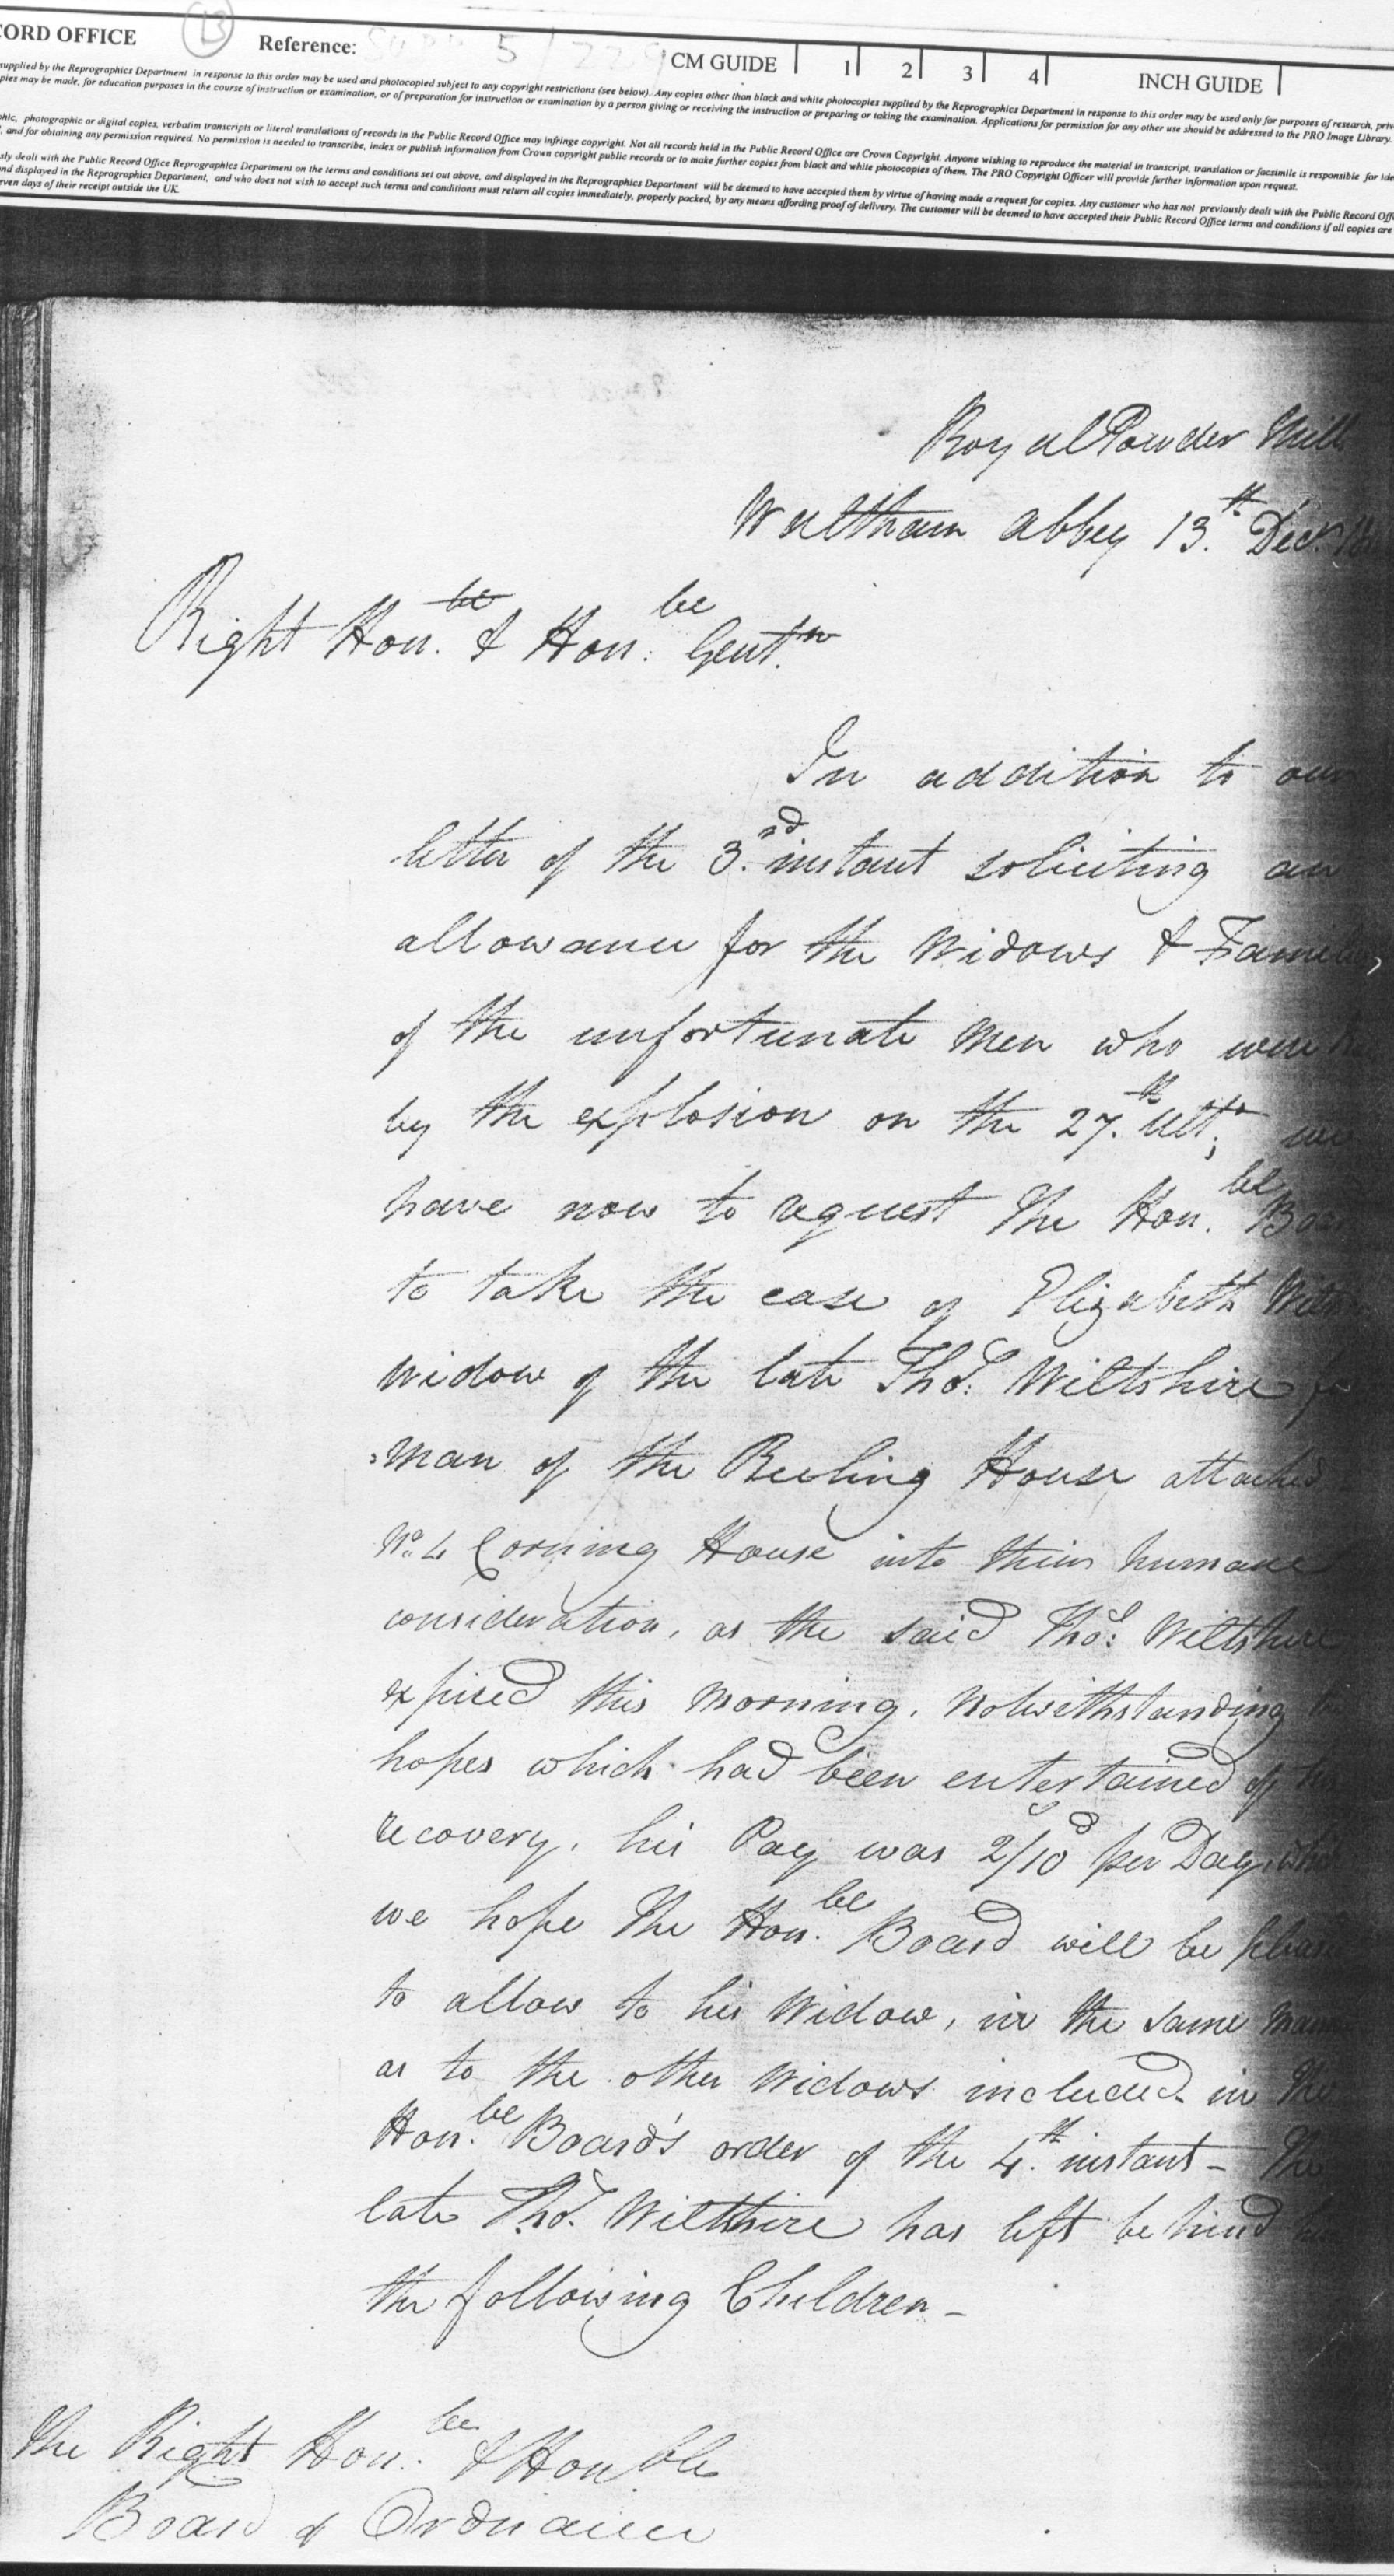 CORD OFFICE
13
Reference: SUPP 5/229
CM GUIDE 1 2 3 4 INCH GUIDE
supplied by the Reprographics Department in response to this order may be used and photocopied subject to any copyright restrictions (see below). Any copies other than black and white photocopies supplied by the Reprographics Department in response to this order may be used only for purposes of research, priv
pies may be made, for education purposes in the course of instruction or examination, or of preparation for instruction or examination by a person giving or receiving the instruction or preparing or taking the examination. Applications for permission for any other use should be addressed to the PRO Image Library.
phic, photographic or digital copies, verbatim transcripts or literal translations of records in the Public Record Office may infringe copyright. Not all records held in the Public Record Office are Crown Copyright. Anyone wishing to reproduce the material in transcript, translation or facsimile is responsible for ide
, and for obtaining any permission required. No permission is needed to transcribe, index or publish information from Crown copyright public records or to make further copies from black and white photocopies of them. The PRO Copyright Officer will provide further information upon request.
sly dealt with the Public Record Office Reprographics Department on the terms and conditions set out above, and displayed in the Reprographics Department will be deemed to have accepted them by virtue of having made a request for copies. Any customer who has not previously dealt with the Public Record Offi
nd displayed in the Reprographics Department, and who does not wish to accept such terms and conditions must return all copies immediately, properly packed, by any means affording proof of delivery. The customer will be deemed to have accepted their Public Record Office terms and conditions if all copies are
even days of their receipt outside the UK.
Royal Powder Mill
Waltham Abbey 13.th Decr. 18
Right Hon.ble & Hon:ble Gent.n
In addition to our
letter of the 3.rd instant soliciting an
allowance for the Widows & Famil
of the unfortunate Men who were
by the explosion on the 27.th Ult.o; we
have now to request The Hon.ble Boa
to take the case of Elizabeth Wilts
Widow of the late Thos: Wiltshire fo
=man of the Reeling House attached
No. 4 Corning House into their humane
consideration, as the said Thos: Wiltshire
expired this Morning, Notwithstanding
hopes which had been entertained of his
recovery, his Pay was 2/10d per Day, which
we hope The Hon.ble Board will be pleas
to allow to his Widow, in the same Mann
as to the other Widows included in the
Hon.ble Board's order of the 4.th instant - The
late Thos. Wiltshire has left behind him
the following Children -
The Right Hon.ble & Honble
Board of Ordnance